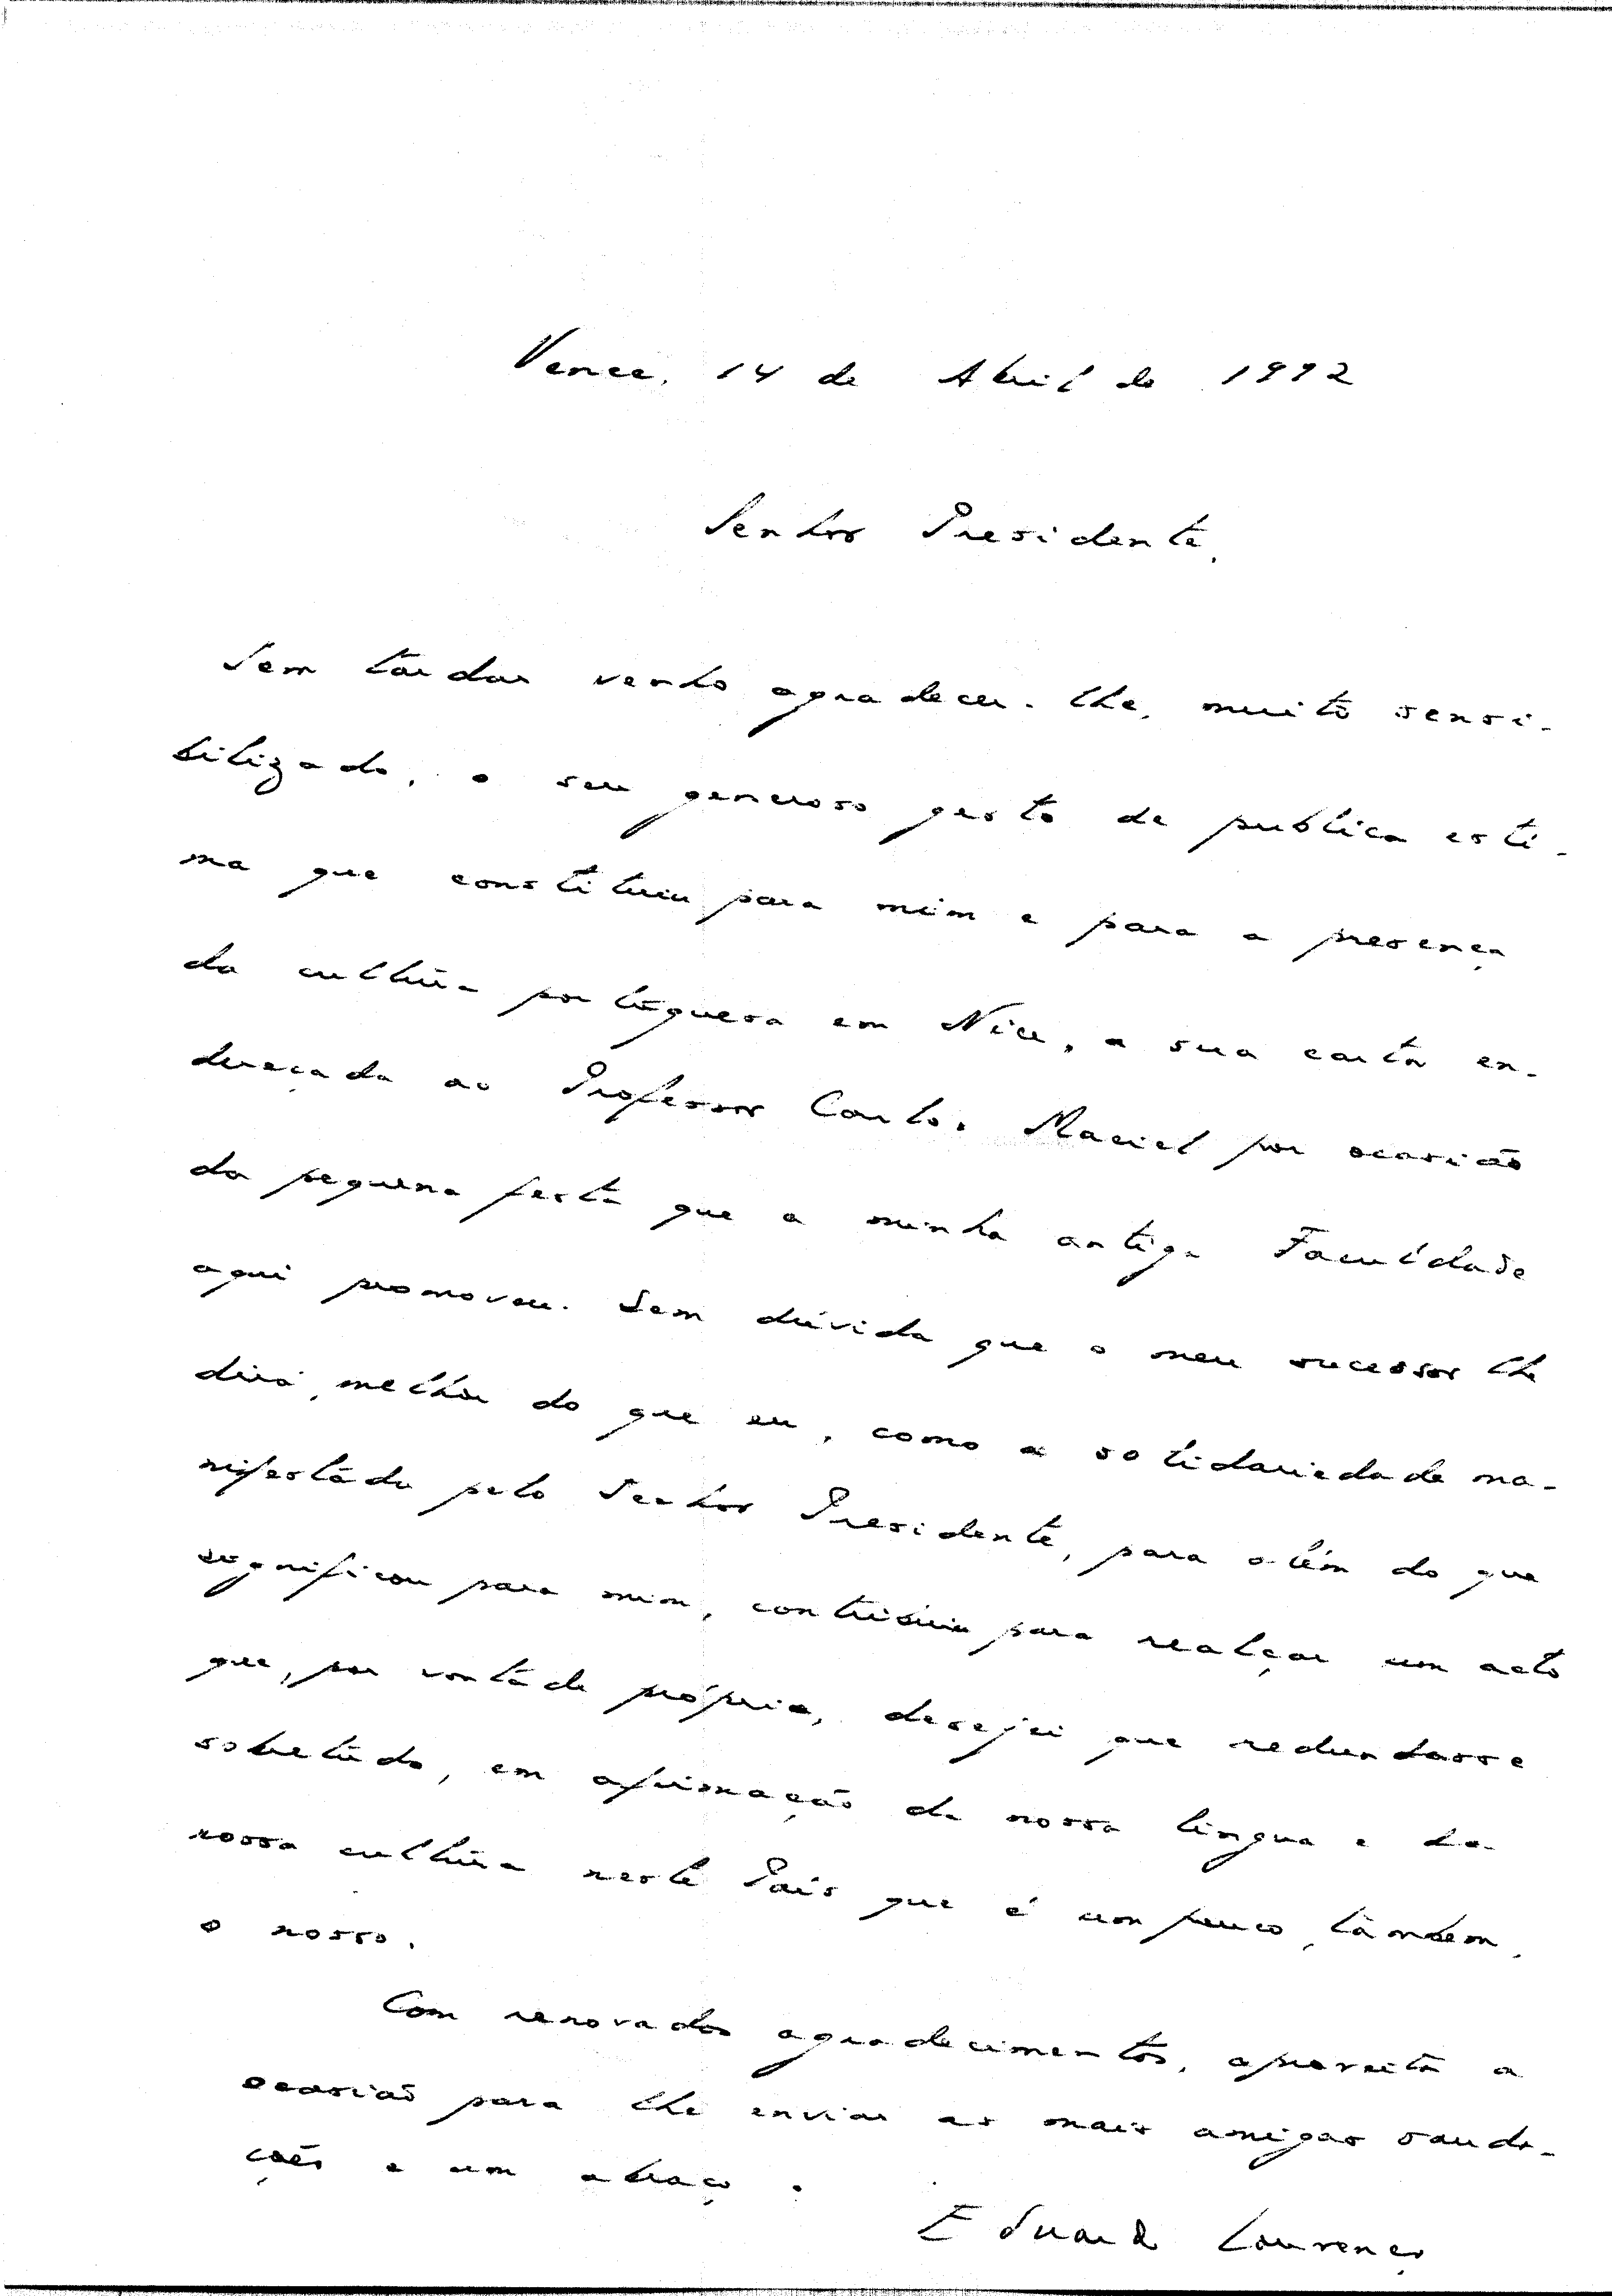 Vence, 14 de Abril de 1992
Senhor Presidente,
Sem tardar venho agradecer-lhe, muito sensi-
bilizado, o seu generoso gesto de publica esti-
ma que constituiu para mim e para a presença
da cultura portuguesa em Nice, a sua carta en-
dereçada ao Professor Carlos Maciel por ocasião
da pequena festa que a minha antiga Faculdade
aqui promoveu. Sem dúvida que o meu sucessor lhe
dirá, melhor do que eu, como a solidariedade ma-
nifestada pelo Senhor Presidente, para além do que
significou para mim, contribuiu para realçar um acto
que, por vontade própria, desejei que redundasse
sobretudo, em afirmação da nossa língua e da
nossa cultura neste País que é um pouco, também,
o nosso.
Com renovados agradecimentos, aproveito a
ocasião para lhe enviar as mais amigas sauda-
ções e um abraço.
Eduardo Lourenço